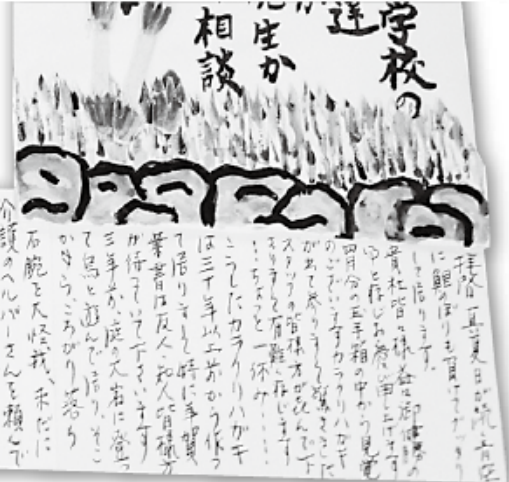 学校の
達
が
先生か
相談
拝啓 真夏日が続
に鯉のぼりも
して居ります。
貴社皆々様益々御健勝の
と存じお慶び申し上げます
四月分の玉手箱の中から見覚
のございますカラクリハガキ
が出て参りまして驚き
スタッフの皆様方が喜んで下
さりまして有難く存じます
…ちょっと一休み…
こうしたカラクリハガキ
は三十年以上前から作っ
て居りまして特に年賀
葉書は友人・知人皆様方
が待っていて下さいます
三年前、庭の大岩に登っ
て鳥と遊んで居り、そこ
からころがり落ち
右腕を大怪我、未だに
介護のヘルパーさんを頼んで